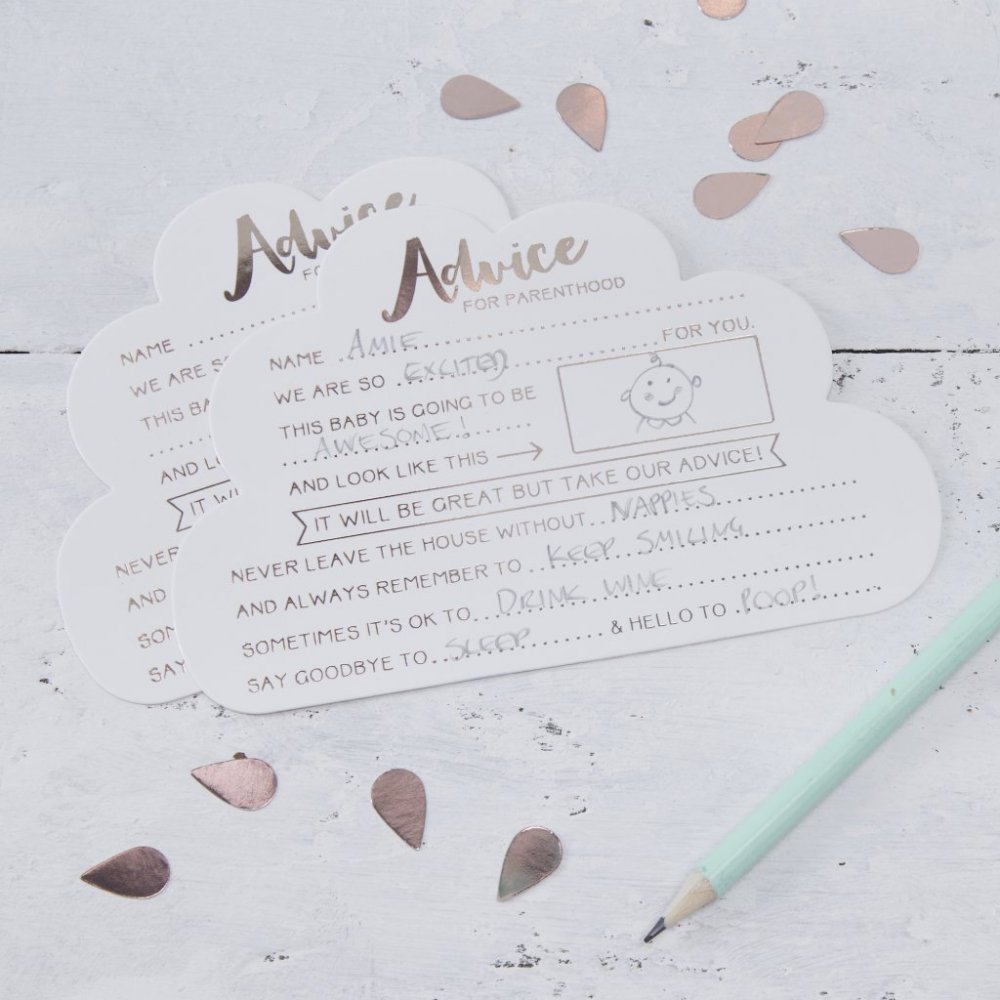 Advice
FOR PARENTHOOD
NAME AMIE
WE ARE SO EXCITED FOR YOU.
THIS BABY IS GOING TO BE
AWESOME!
AND LOOK LIKE THIS
IT WILL BE GREAT BUT TAKE OUR ADVICE!
NEVER LEAVE THE HOUSE WITHOUT NAPPIES
AND ALWAYS REMEMBER TO KEEP SMILING
SOMETIMES IT'S OK TO DRINK WINE
SAY GOODBYE TO SLEEP & HELLO TO POOP!
Advice
NAME
WE ARE SO
THIS
AND
IT
NEVER
AND
SAY